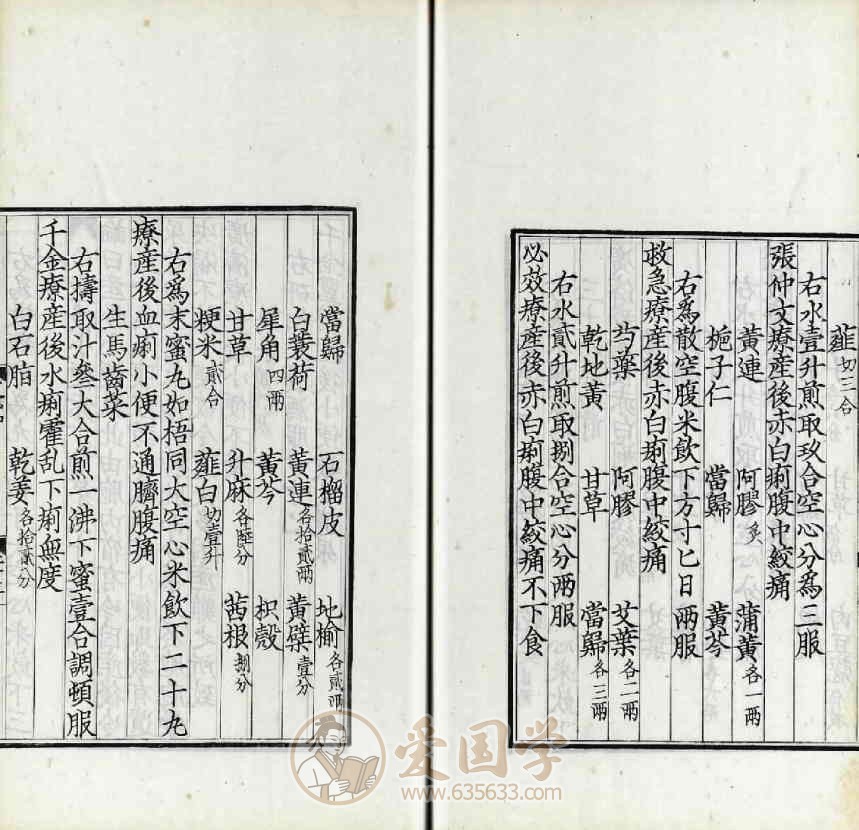 薤切三合
右水壹升煎取玖合空心分為三服
張仲文療産後赤白痢腹中絞痛
黃連 阿膠炙 蒲黃各一兩
梔子仁 當歸 黃芩
右為散空腹米飲下方寸匕日兩服
救急療産後赤白痢腹中絞痛
芍藥 阿膠 艾葉各二兩
乾地黃 甘草 當歸各三兩
右水貳升煎取捌合空心分兩服
必效療産後赤白痢腹中絞痛不下食
當歸 石榴皮 地榆各貳兩
白蘘荷 黃連各拾貳兩 黃蘗壹分
犀角四兩 黃芩 枳殼
甘草 升麻各陸分 茜根捌分
粳米貳合 薤白切壹升
右為末蜜丸如梧同大空心米飲下二十九
療産後血痢小便不通臍腹痛
生馬齒菜
右擣取汁叄大合煎一沸下蜜壹合調頓服
千金療産後水痢霍乱下痢無度
白石脂 乾姜各拾貳分
爱国学
www.635633.com